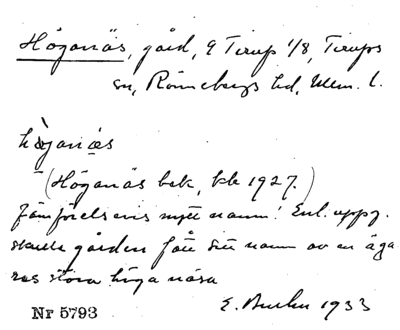 Höganäs, gård, 9 Tirup 1/8, Tirups
sn, Rönnebergs hd, Mlm. l.
höganäs
(Höganäs bek, kbr 1927.)
Jämförelsevis nytt namn! Enl. uppg.
skulle gården fått sitt namn av en äga
res stora höga näsa
E. 1933
Nr 5793